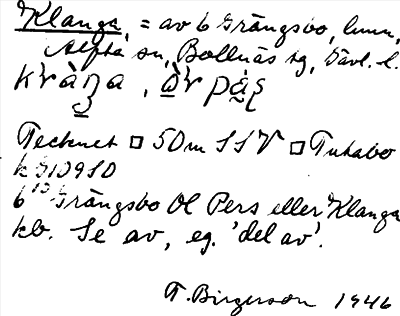 Klanga, = av 6 Grängsbo, lmn,
Alfta sn, Bollnäs tg, Gävl. l.
Tecknet □ 50m SSV □ Tutabo
k G109SD
6 Grängsbo Ol Pers eller Klanga
kb. Se av, eg. 'del av'.
T. Birgerson 1946